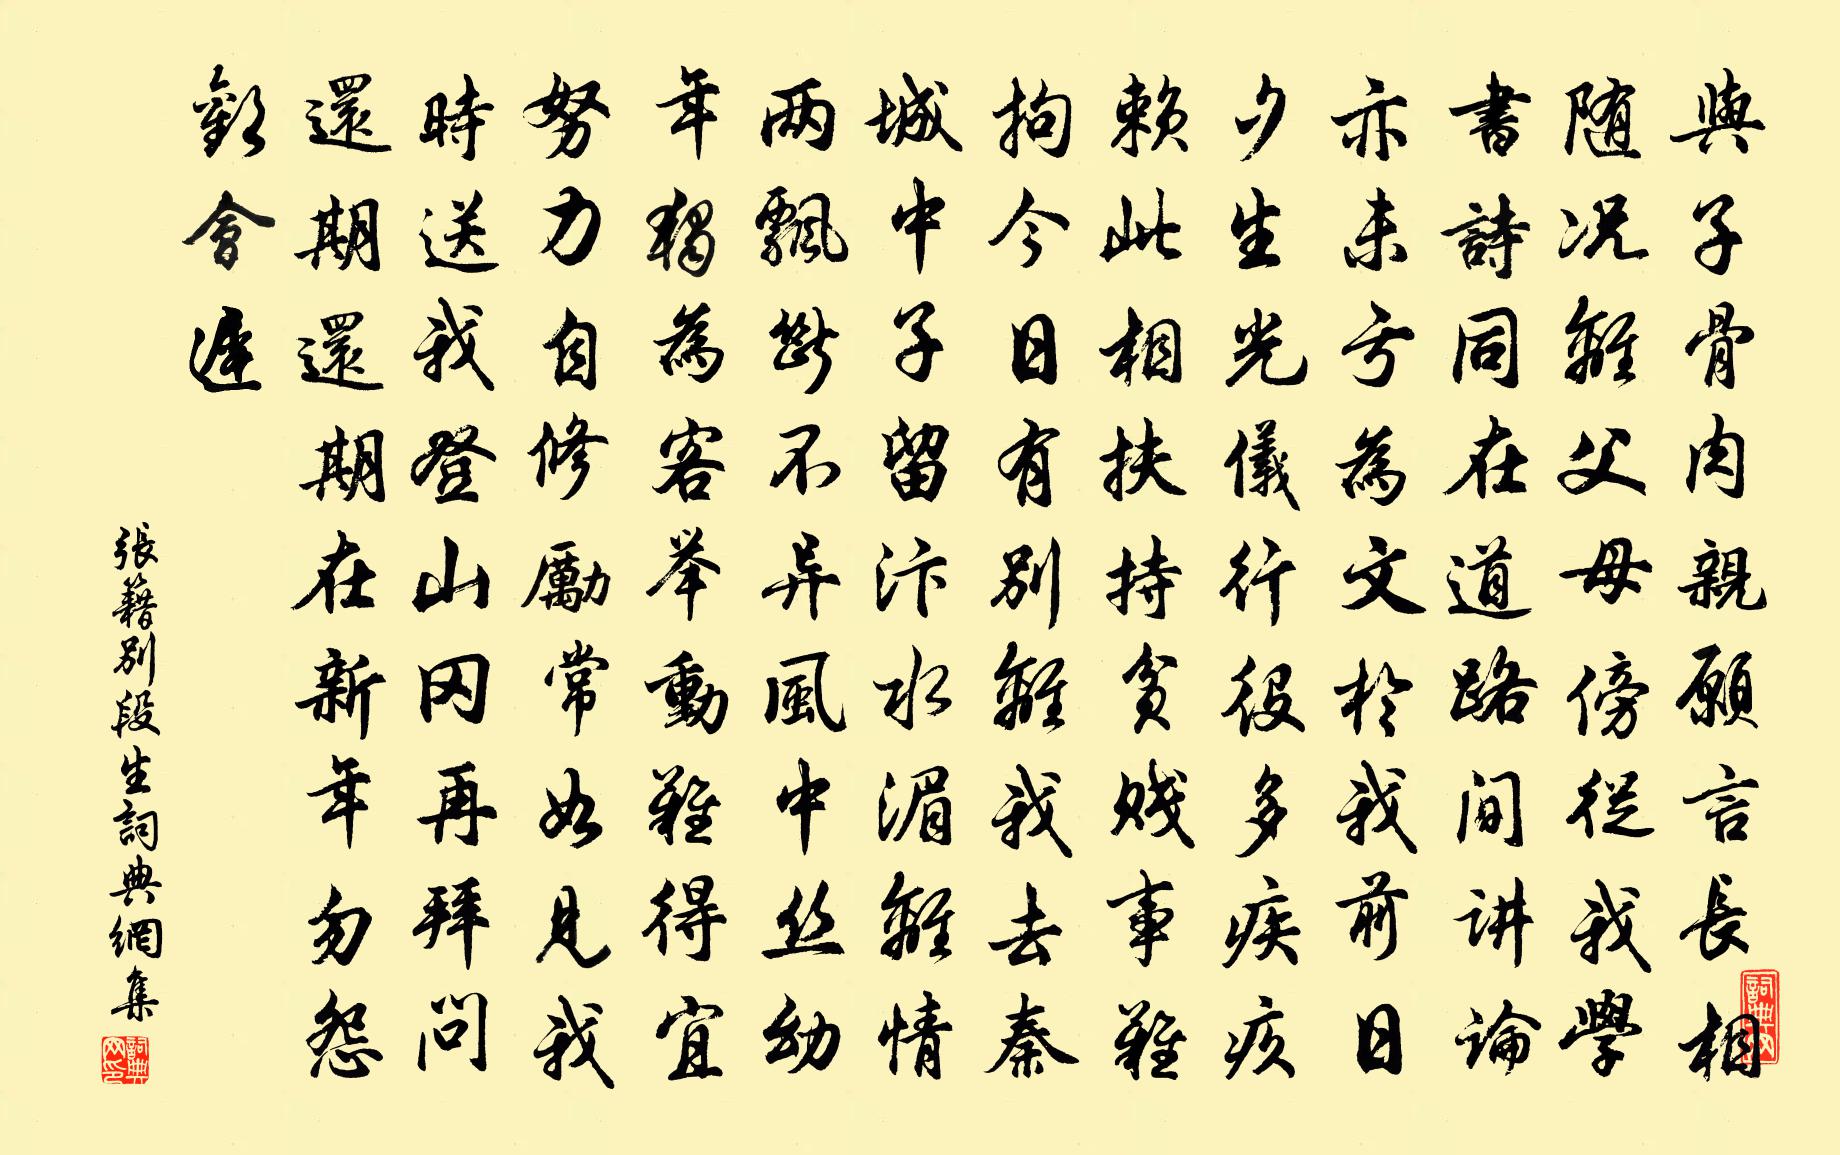 與子骨肉親願言長相
随况離父母傍從我學
書詩同在道路間讲論
亦未亏為文於我前日
夕生光儀行役多疾疢
賴此相扶持貧賤事難
拘今日有别離我去秦
城中子留汴水湄離情
两飄斷不异風中丝幼
年獨為客举動難得宜
努力自修勵常如見我
時送我登山冈再拜問
還期還期在新年勿怨
歡會遲
張籍别段生詞典網集